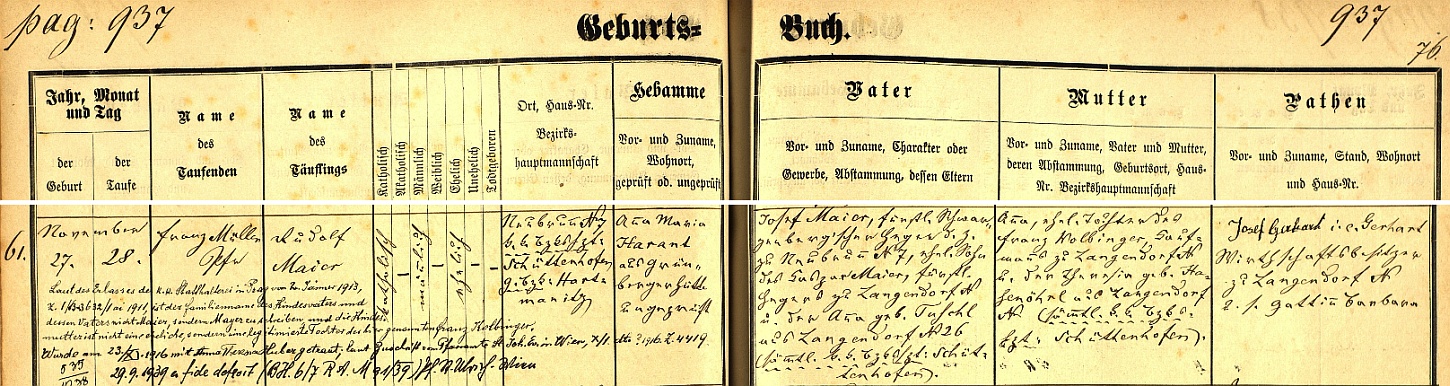 pag: 937
Geburts=
Buch.
937
76.
Jahr, Monat und Tag
der Geburt
der Taufe
Name des Taufenden
Name des Täuflings
Katholisch
Akatholisch
Männlich
Weiblich
Ehelich
Unehelich
Todtgeboren
Ort, Haus-Nr.
Bezirks-
hauptmannschaft
Hebamme
Vor- und Zuname,
Wohnort,
geprüft od. ungeprüft
Vater
Vor- und Zuname, Charakter oder
Gewerbe, Abstammung, dessen Eltern
Mutter
Vor- und Zuname, Vater und Mutter,
deren Abstammung, Geburtsort, Haus-
Nr. Bezirkshauptmannschaft
Pathen
Vor- und Zuname, Stand, Wohnort
und Haus-Nr.
61.
November
27.
28.
Franz Müller
Pfr
Rudolf
Maier
katholisch
männlich
ehelich
Neubrunn N 7
k. k. Bzhptz:
Schüttenhofen
g. bz: Hart-
manitz
Anna Maria
Harant
aus Grün-
bergerhütte
ungeprüft
Josef Maier, fürstl. Schwar-
zenberg'scher Heger d. z.
zu Neubrunn N 7, ehel. Sohn
des Kaspar Maier, fürstl.
Hegers zu Langendorf N
u. der Anna geb. Tuschl
aus Langendorf N 26
(sämtl. k. k. Bzbhpt: Schüt-
tenhofen).
Anna, ehel. Tochter des
Franz Kolbinger, Kauf-
manns zu Langendorf N
u. der Theresia geb. Ha-
aus Langendorf
N (sämtl. k. k. Bzbs-
hpt: Schüttenhofen).
Josef Gerhart i. e. Gerhart
Wirthschaftsbesitzer
zu Langendorf N
u. s. Gattin Barbara
Laut des Erlasses der k. k. Statthalterei in Prag vom 2. Jänner 1913,
Z. ai 1911, ist der Familienname des Kindesvaters und
dessen Vaters nicht Maier, sondern Mayer zu schreiben und die Kindes-
mutter ist nicht eine eheliche, sondern eine legitimierte Tochter des hier genannten Franz Kolbinger,
Wurde am 23/ 1916 mit Anna Huber getraut, laut Zuschrift des Pfarramtes St. Joh. Ev. in Wien, X/1. dto ? 1916. Z. 4419.
29.9.1939 a fide defecit (BH. 6/7 R. A. M 91/39) Pf. N. Wien